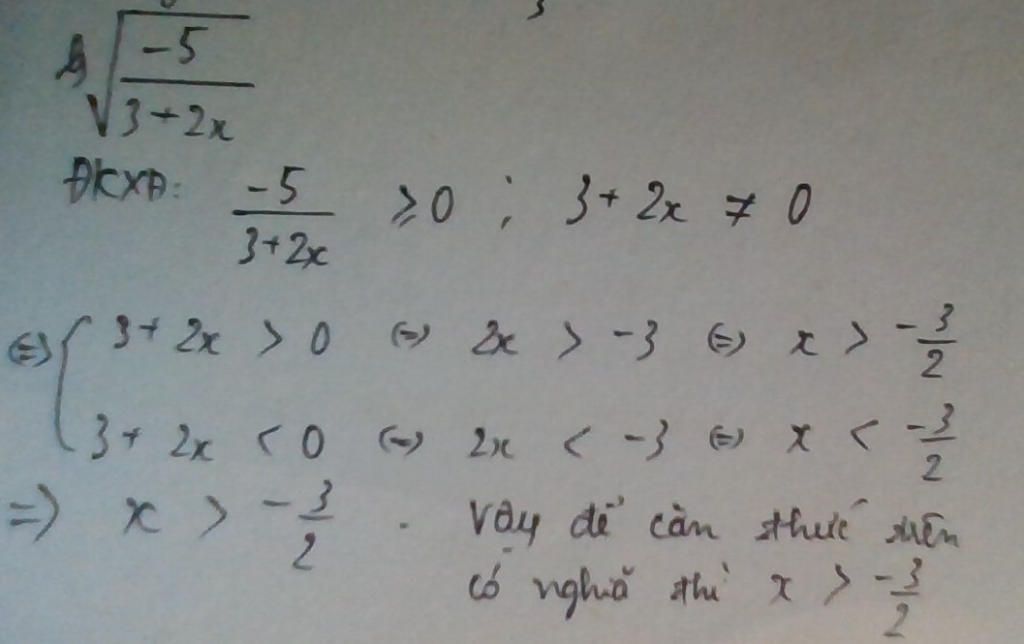 √(-5/(3+2x))
ĐKXĐ: -5/(3+2x) ≥ 0 ; 3+2x ≠ 0
⇔ { 3+2x > 0 ⇔ 2x > -3 ⇔ x > -3/2
3+2x < 0 ⇔ 2x < -3 ⇔ x < -3/2
⇒ x > -3/2 . Vậy để căn thức trên
có nghĩa thì x > -3/2